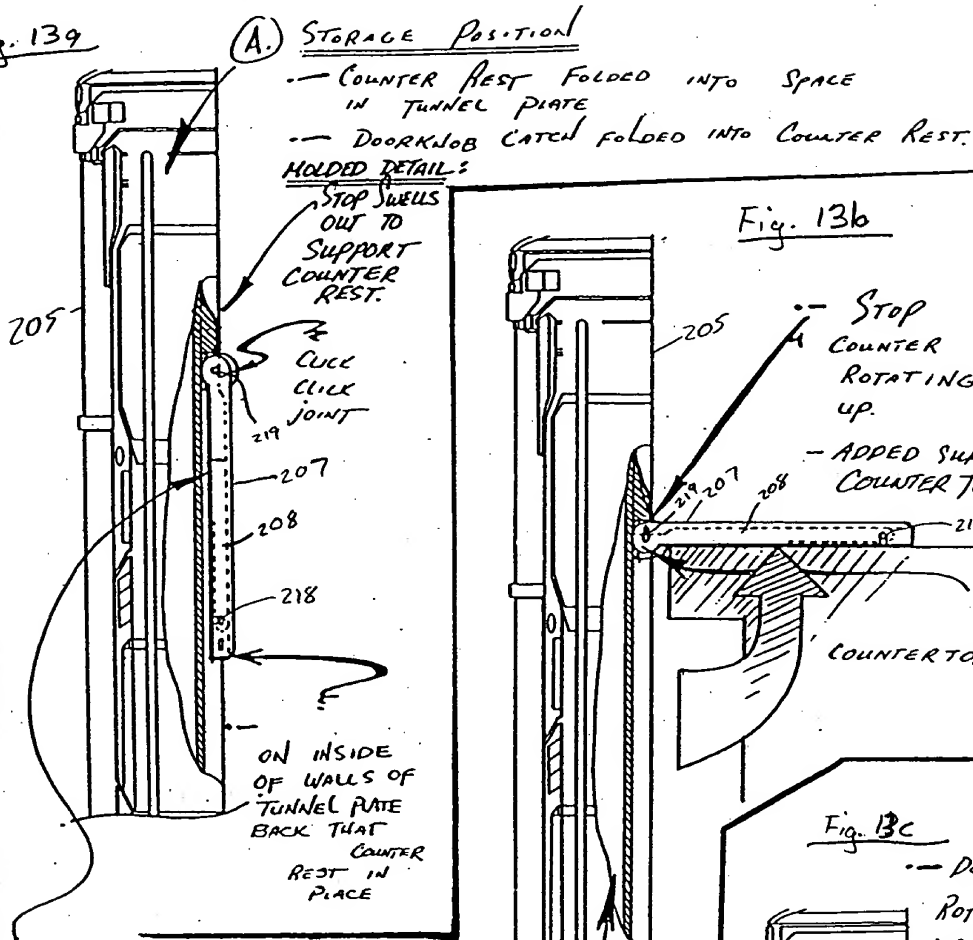 g. 13a
A. STORAGE POSITION
·— COUNTER REST FOLDED INTO SPACE
IN TUNNEL PLATE
·— DOORKNOB CATCH FOLDED INTO COUNTER REST.
MOLDED DETAIL:
STOP SWELLS
OUT TO
SUPPORT
COUNTER
REST.
205
CLICK
CLICK
JOINT
219
207
208
218
ON INSIDE
OF WALLS OF
TUNNEL PLATE
BACK THAT
COUNTER
REST IN
PLACE
Fig. 13b
205
·— STOP
COUNTER
ROTATING
UP.
- ADDED
COUNTER
219
207
208
21
COUNTERTO
Fig. 13c
·— D
ROT